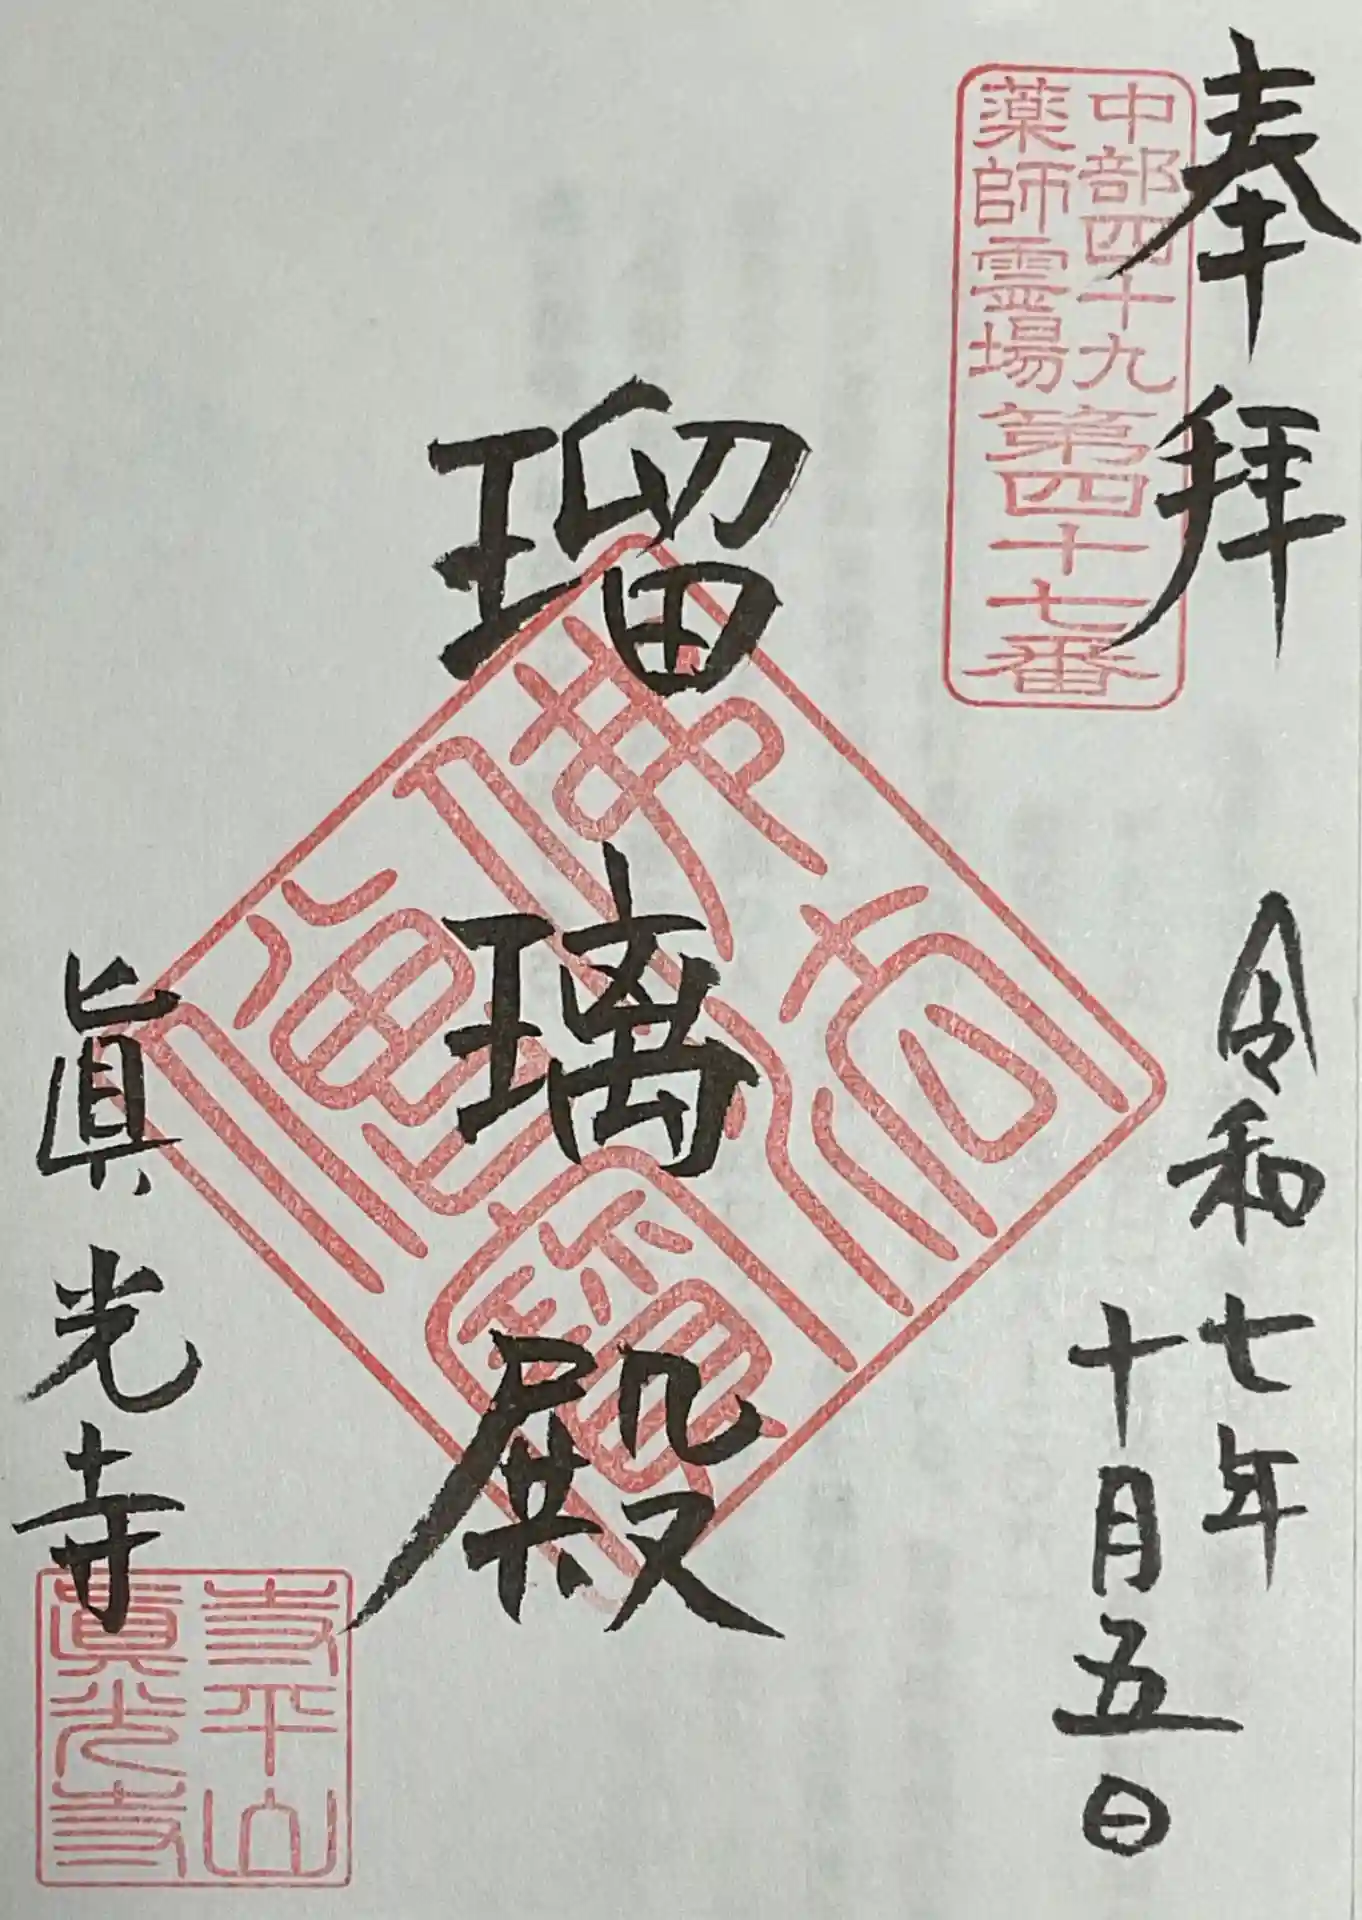 奉拝
中部四十九
薬師霊場
第四十七番
令和七年
十月五日
瑠璃殿
佛法僧寳
眞光寺
寺平山
眞光寺